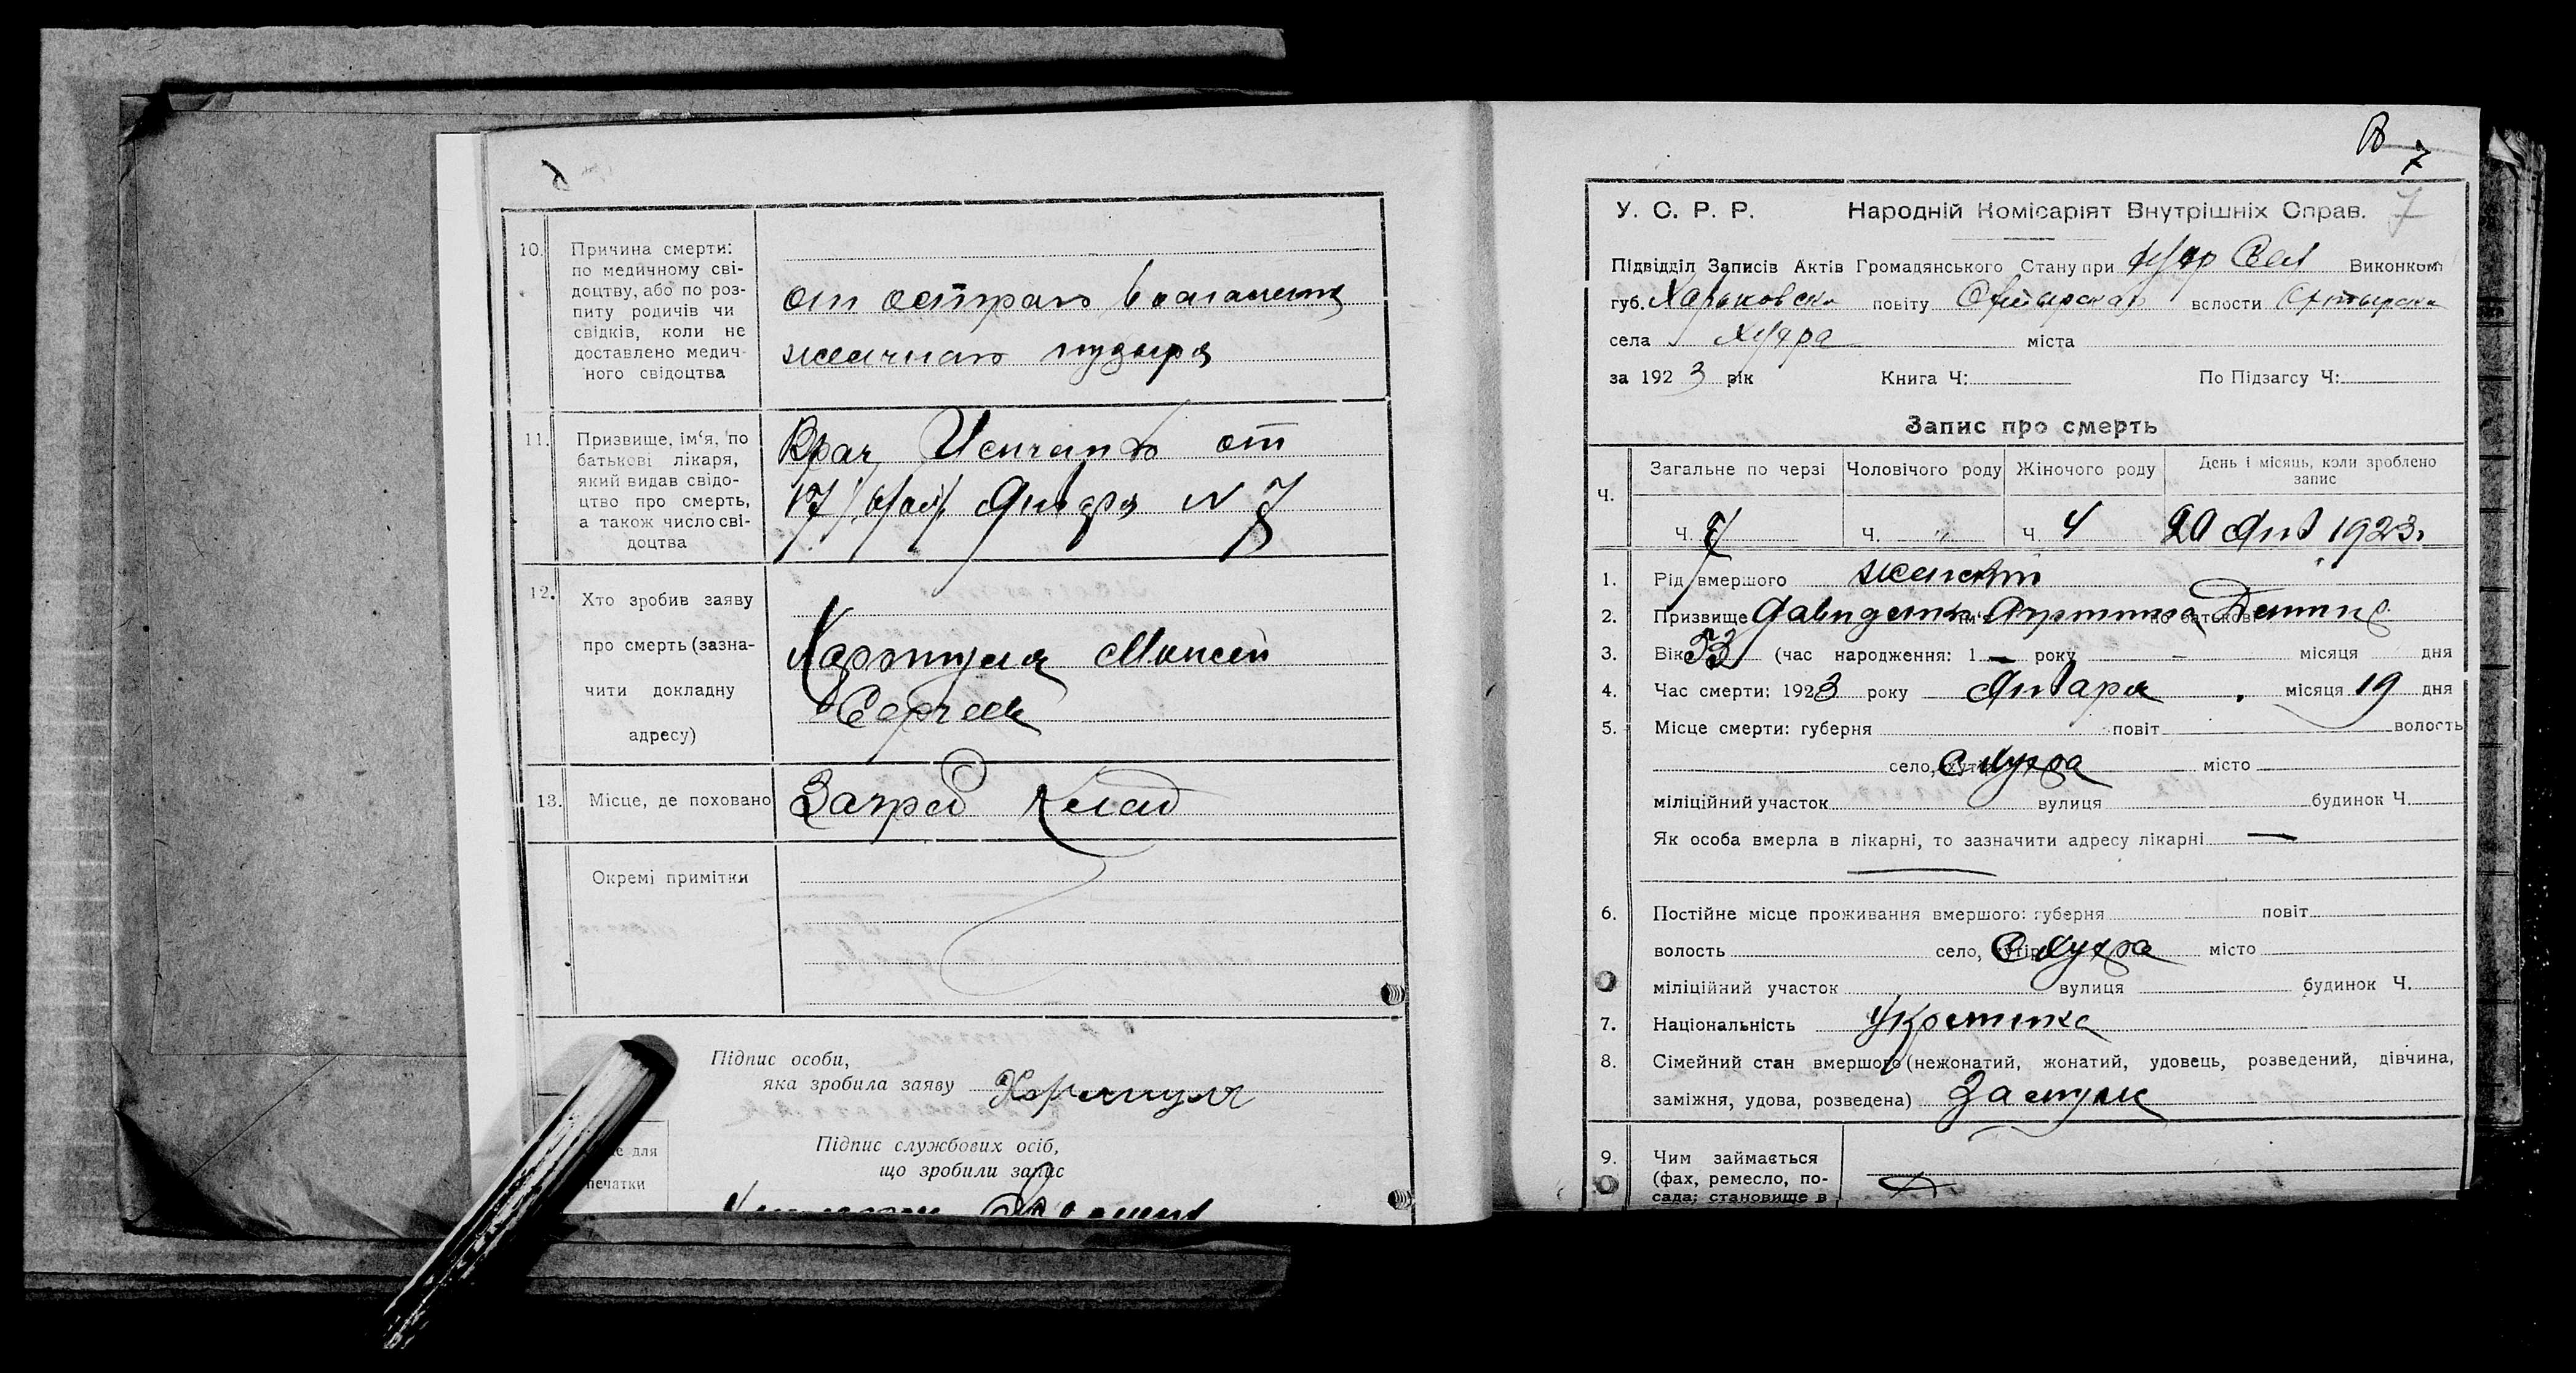 10.
Причина смерти:
по медичному сві-
доцтву, або по роз-
питу родичів чи
свідків, коли не
доставлено медич-
ного свідоцтва
от остраго воспаления
желчнаго пузыря
11.
Призвище, ім'я, по
батькові лікаря,
який видав свідо-
цтво про смерть,
а також число сві-
доцтва
Врач от
17 Января N 7
12.
Хто зробив заяву
про смерть (зазна-
чити докладну
адресу)
Моисей
Сергеев
13.
Місце, де поховано
Загред Клад
Окремі примітки
Підпис особи,
яка зробила заяву
Підпис службових осіб,
що зробили запис
для
печатки
7
У. С. Р. Р. Народній Комісаріят Внутрішніх Справ. 7
Підвідділ Записів Актів Громадянського Стану при Хухр Сел Виконком
губ. Харьковска повіту Ахтырская волости Ахтырска
села Хухра міста
за 1923 рік Книга Ч: По Підзагсу Ч:
Запис про смерть
Ч. Загальне по черзі Чоловічого роду Жіночого роду День і місяць, коли зроблено запис
Ч. 7 Ч. " Ч. 4 20 Янв 1923.
1. Рід вмершого женский
2. Призвище Давиденко ім'я по батькові
3. Вік 53 (час народження: 1 — року — місяця дня
4. Час смерти: 1923 року Января місяця 19 дня
5. Місце смерти: губерня повіт волость
село, хутір С Хухра місто
міліційний участок вулиця будинок Ч.
Як особа вмерла в лікарні, то зазначити адресу лікарні —
6. Постійне місце проживання вмершого: губерня повіт
волость село, хутір С Хухра місто
міліційний участок вулиця будинок Ч.
7. Національність Украинка
8. Сімейний стан вмершого (нежонатий, жонатий, удовець, розведений, дівчина,
заміжня, удова, розведена) Замуж
9. Чим займається
(фах, ремесло, по-
сада; становище в